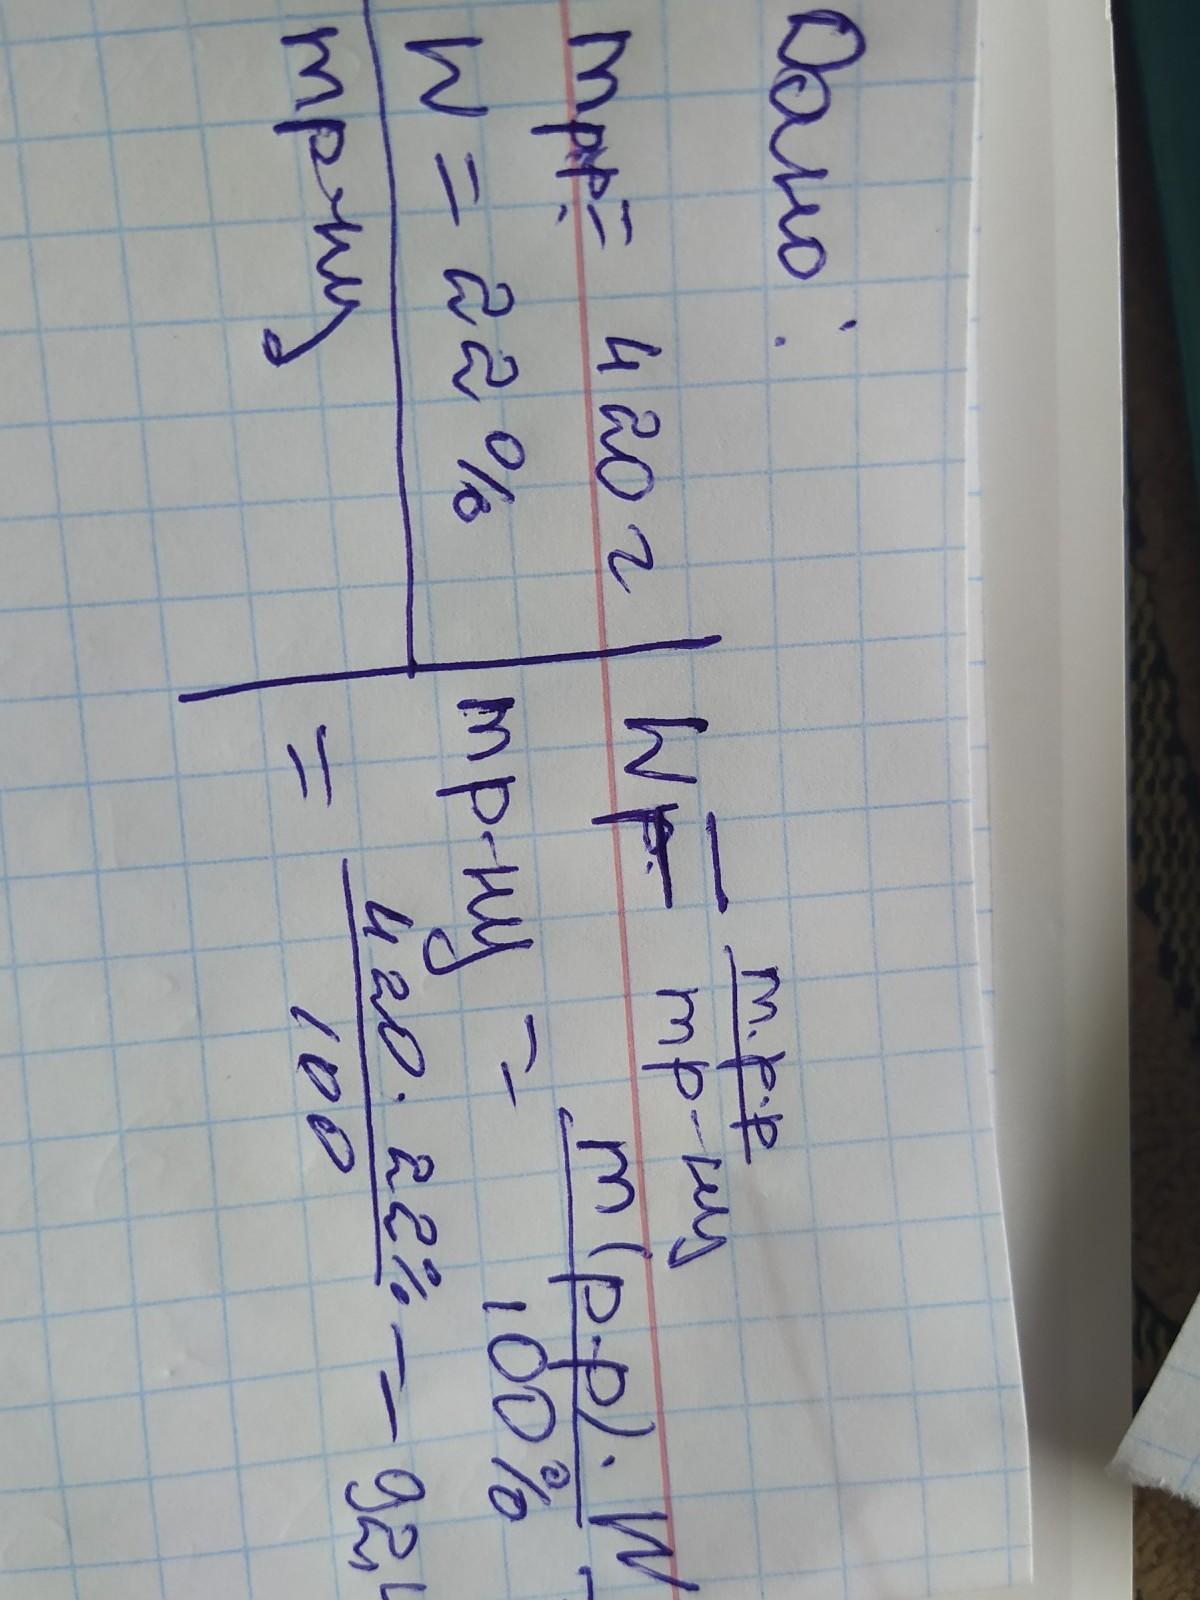 Дано:
mр.р = 420 г
W = 22%
mр-ну
W = m.р.р
mр-ну
mр-ну = m(р.р).W
100%
= 420.22% = 92,
100